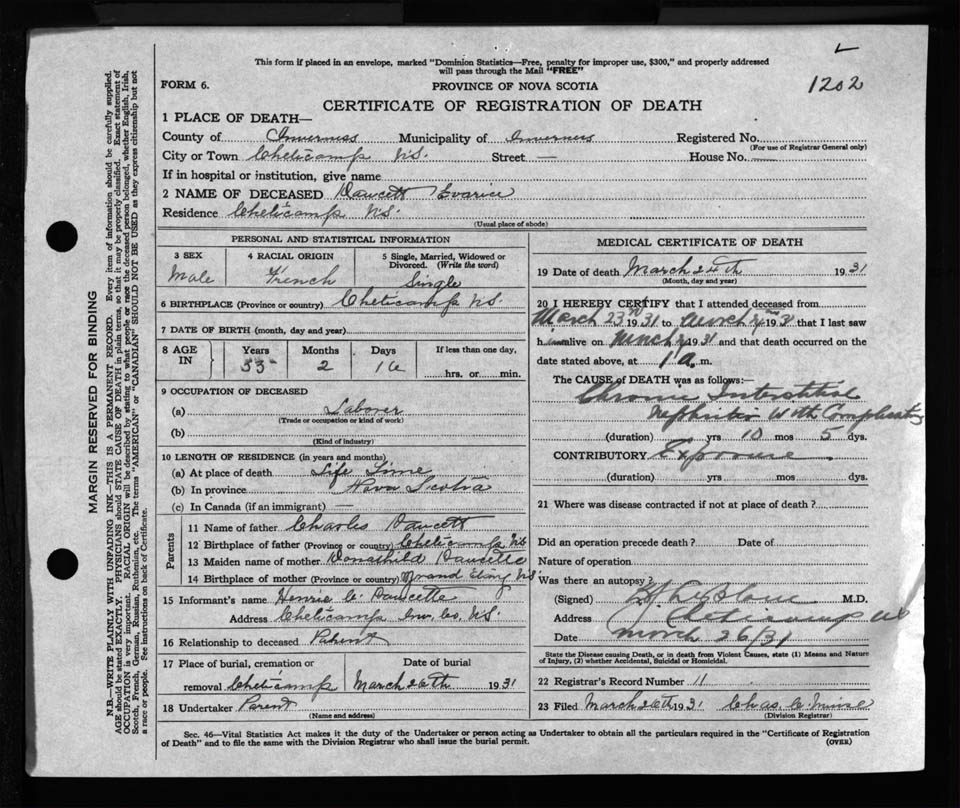 This form if placed in an envelope, marked "Dominion Statistics—Free, penalty for improper use, $300," and properly addressed
will pass through the Mail "FREE"
FORM 6.
PROVINCE OF NOVA SCOTIA
1202
CERTIFICATE OF REGISTRATION OF DEATH
1 PLACE OF DEATH—
County of Inverness Municipality of Inverness Registered No.
(For use of Registrar General only)
City or Town Cheticamp N.S. Street — House No.
If in hospital or institution, give name
2 NAME OF DECEASED Doucett
Residence Cheticamp N.S.
(Usual place of abode)
PERSONAL AND STATISTICAL INFORMATION
3 SEX 4 RACIAL ORIGIN 5 Single, Married, Widowed or
Divorced. (Write the word)
Male French Single
6 BIRTHPLACE (Province or country) Cheticamp N.S.
7 DATE OF BIRTH (month, day and year)
8 AGE IN Years Months Days If less than one day,
2 16 hrs. or min.
9 OCCUPATION OF DECEASED
(a) Laborer
(Trade or occupation or kind of work)
(b)
(Kind of industry)
10 LENGTH OF RESIDENCE (in years and months)
(a) At place of death Life Time
(b) In province Nova Scotia
(c) In Canada (if an immigrant) —
Parents
11 Name of father Charles Doucett
12 Birthplace of father (Province or country) Cheticamp N.S.
13 Maiden name of mother Doucette
14 Birthplace of mother (Province or country) Grand Etang N.S.
15 Informant's name Henrie C. Doucette
Address Cheticamp Inv. Co. N.S.
16 Relationship to deceased Parent
17 Place of burial, cremation or
removal Cheticamp
Date of burial
March 26th 1931
18 Undertaker Parent
(Name and address)
MEDICAL CERTIFICATE OF DEATH
19 Date of death March 24th 1931
(Month, day and year)
20 I HEREBY CERTIFY that I attended deceased from
March 23rd 1931 to March 193 that I last saw
h im alive on March 1931 and that death occurred on the
date stated above, at 1 a. m.
The CAUSE of DEATH was as follows:—
Chronic Interstitial
Nephritis with
(duration) yrs 10 mos 5 dys.
CONTRIBUTORY Exposure
(duration) yrs. mos. dys.
21 Where was disease contracted if not at place of death?
Did an operation precede death? Date of
Nature of operation
Was there an autopsy?
(Signed) M.D.
Address
Date March 26/31
State the Disease causing Death, or in death from Violent Causes, state (1) Means and Nature
of Injury, (2) whether Accidental, Suicidal or Homicidal.
22 Registrar's Record Number 11
23 Filed March 26th 1931 Chas. C.
(Division Registrar)
Sec. 46—Vital Statistics Act makes it the duty of the Undertaker or person acting as Undertaker to obtain all the particulars required in the "Certificate of Registration
of Death" and to file the same with the Division Registrar who shall issue the burial permit.
(OVER)
MARGIN RESERVED FOR BINDING
N.B.—WRITE PLAINLY WITH UNFADING INK—THIS IS A PERMANENT RECORD. Every item of information should be carefully supplied.
AGE should be stated EXACTLY. PHYSICIANS should STATE CAUSE OF DEATH in plain terms, so that it may be properly classified. Exact statement of
OCCUPATION is very important. RACIAL ORIGIN will be described by stating to what people or race the deceased person belonged, whether English, Irish,
Scotch, French, German, Russian, Ruthenian, etc. The terms "AMERICAN" or "CANADIAN" SHOULD NOT BE USED as they express citizenship but not
a race or people. See instructions on back of Certificate.